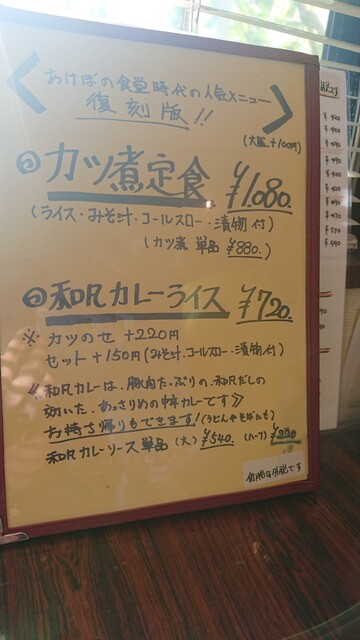 あけぼの食堂時代の人気メニュー
復刻版!!
(大盛+100円)
カツ煮定食 ¥1,080.
(ライス・みそ汁・コールスロー・漬物付)
(カツ煮 単品 ¥880.)
和風カレーライス ¥720.
※ カツのせ +220円
セット +150円(みそ汁・コールスロー・漬物付)
《和風カレーは、豚肉たっぷりの、和風だしの
効いた、あっさりめの中辛カレーです》
お持ち帰りもできます!(うどんやそばにも)
和風カレーソース単品 (大) ¥540. (ハーフ)
価格は外税です